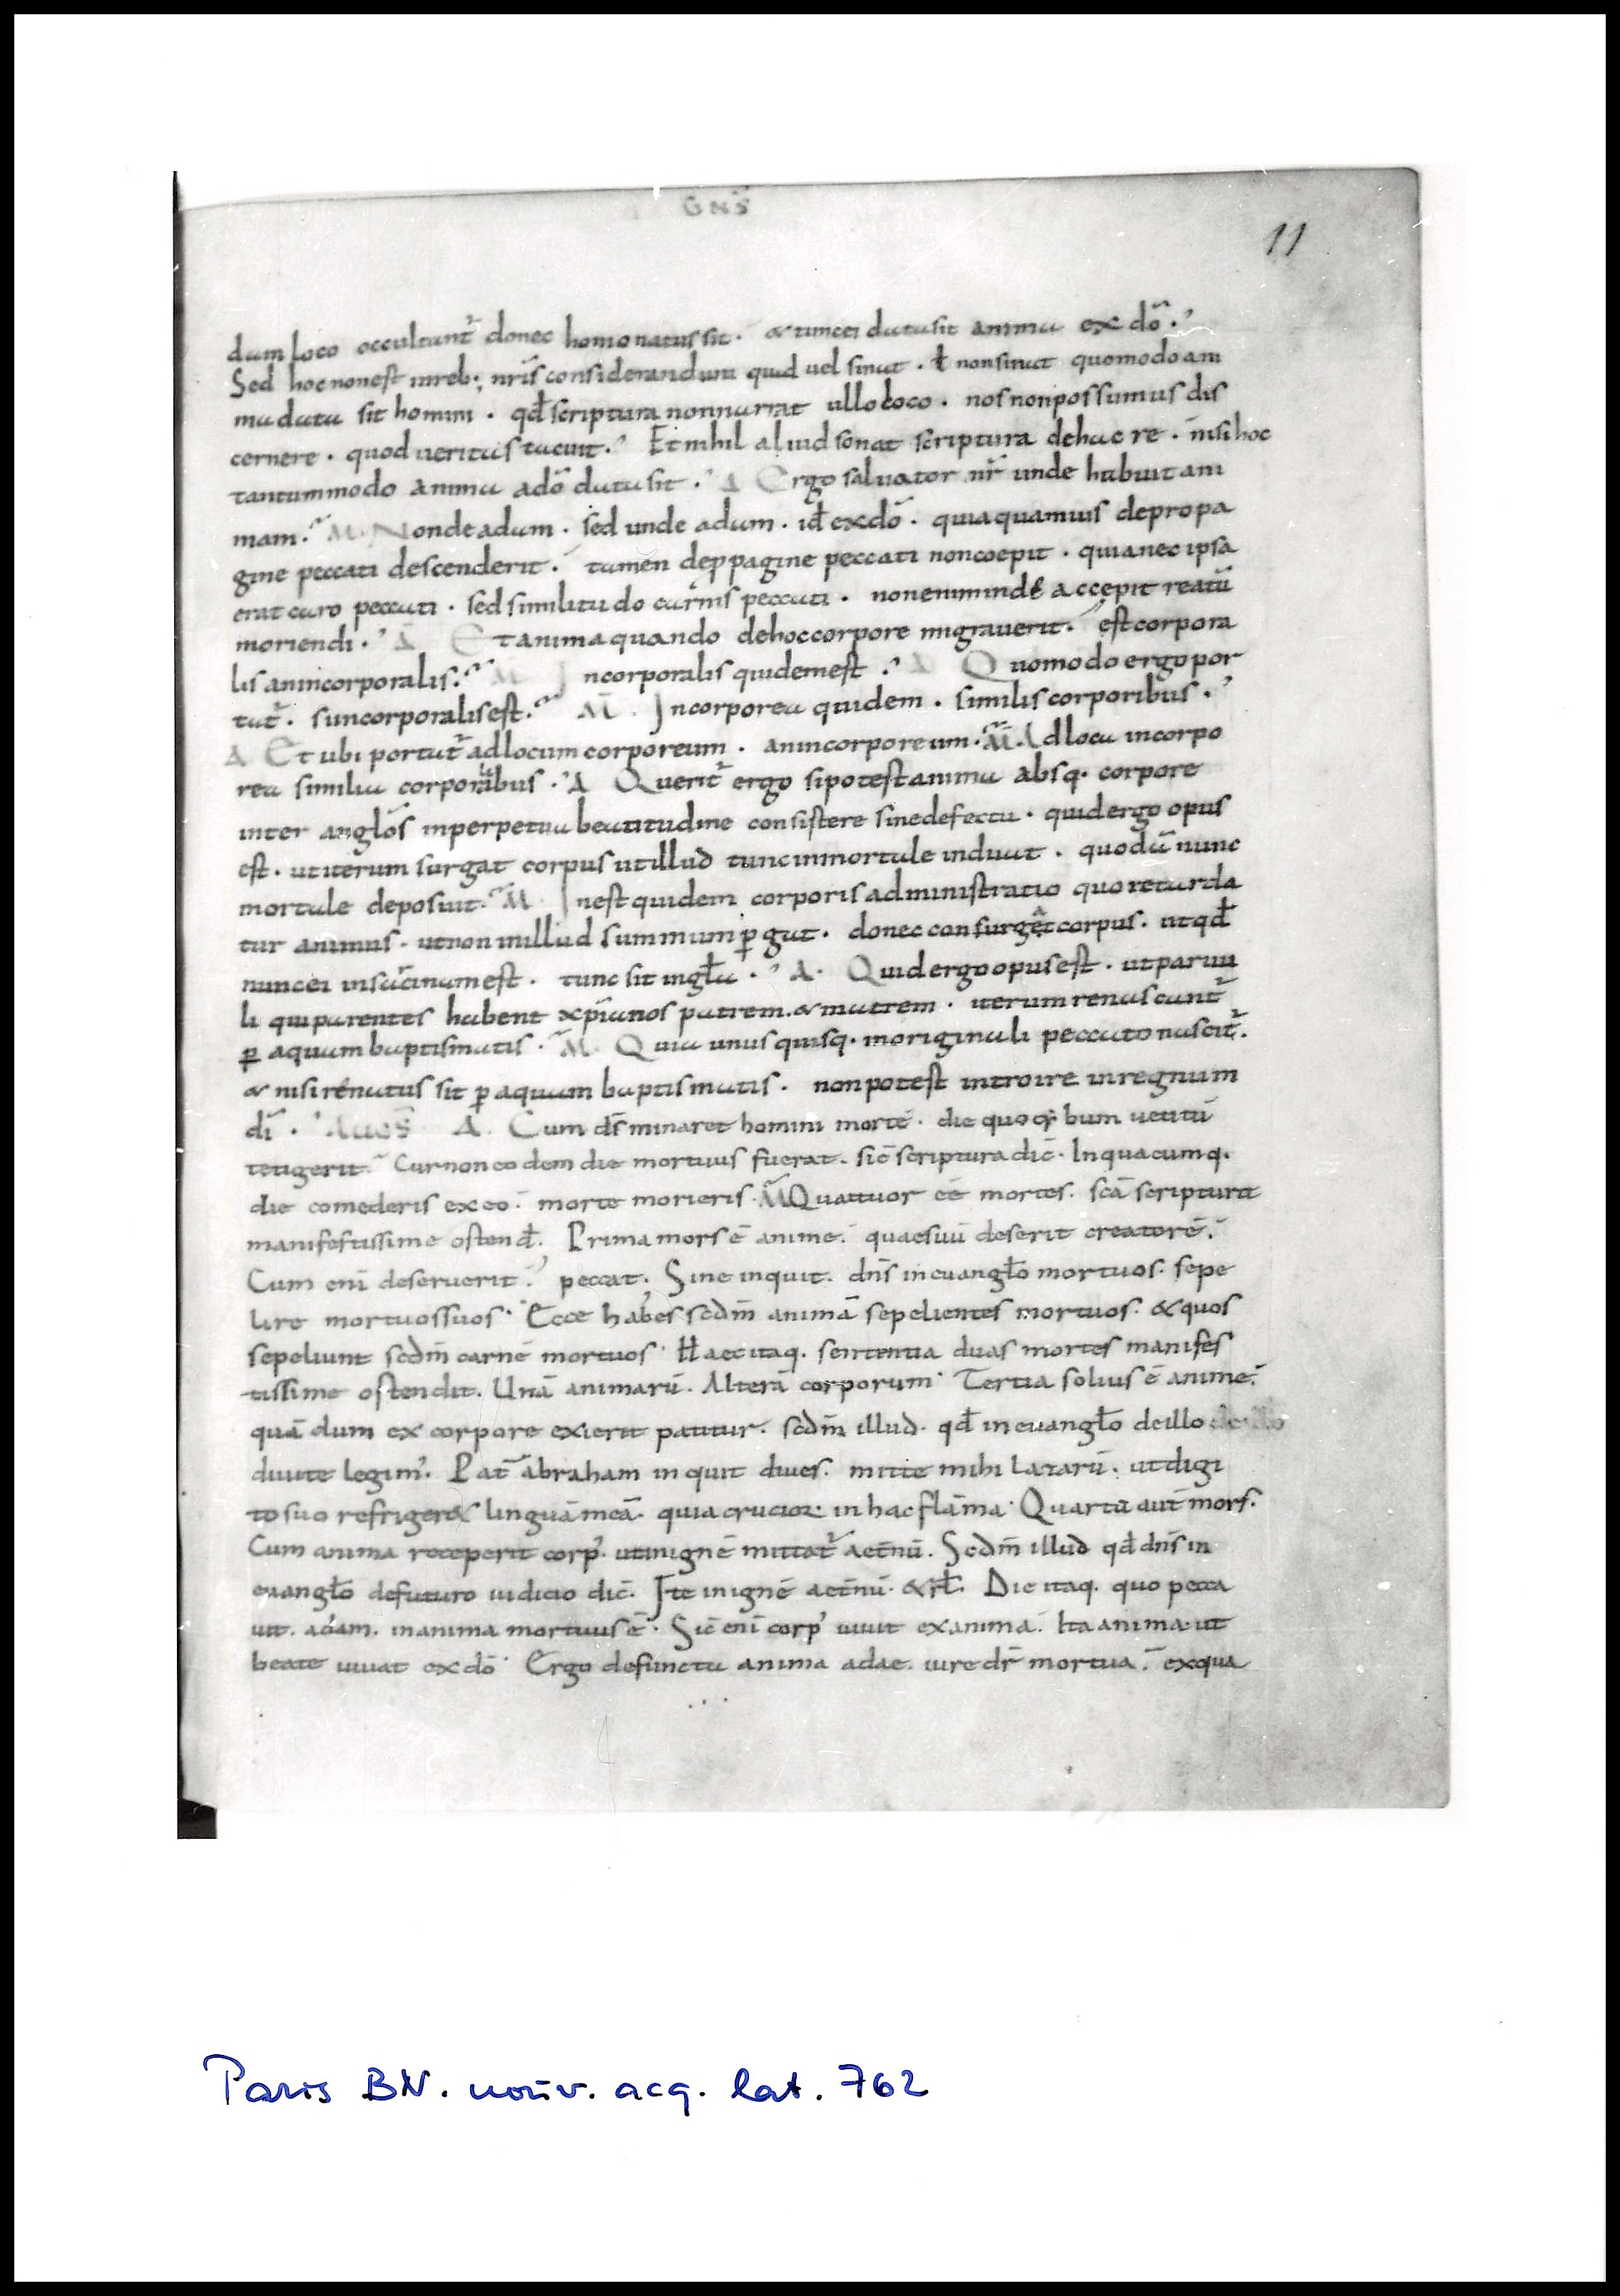 GNS̄
11
dam loco occultant᷑ donec homo natus sit · & tunc ei data sit anima ex dō ·
Sed hoc non est in reb; nr̄is considerandum quid vel sinat · ł non sinat quomodo ani
ma data sit homini · qd̄ scriptura non narrat ullo loco · nos non possumus dis
cernere · quod veritas tacuit · Et nihil aliud sonat scriptura de hac re · nisi hoc
tantummodo anima adō data sit · A Ergo salvator nr̄ unde habuit ani
mam · M · Non de adam · sed unde adam · id̄ ex dō · quia quamvis de propa
gine peccati descenderit · tamen de ꝓpagine peccati non coepit · quia nec ipsa
erat caro peccati · sed similitudo carnis peccati · non enim inde accepit reatū
moriendi · A Et anima quando de hoc corpore migraverit · est corpora
lis an incorporalis · M Incorporalis quidem est · A Quomodo ergo por
tat᷑ · si incorporalis est · M · Incorporea quidem · similis corporibus ·
A Et ubi portat᷑ ad locum corporeum · an incorporeum · M · Ad loca incorpo
rea similia corporibus · A Querit᷑ ergo si potest anima absq· corpore
inter anglōs in perpetua beatitudine consistere sine defectu · quid ergo opus
est · ut iterum surgat corpus ut illud tunc inmortale induat · quod dū nunc
mortale deposuit · M · Inest quidem corporis administratio quo retarda
tur animus · ut non in illud summum ꝑgat · donec consurgat corpus · ut qd̄
nunc ei insarcinum est · tunc sit in gła · A · Quid ergo opus est · ut parvu
li qui parentes habent xp̄ianos patrem · & matrem · iterum renascant᷑
ꝑ aquam baptismatis · M · Quia unus quisq· in originali peccato nascit᷑ ·
& nisi renatus sit ꝑ aquam baptismatis · non potest introire in regnum
dī · A · Cum dſ̄ minaret homini mortē · die quo cybum vetitū
tetigerit · Cur non eodem die mortuus fuerat · sic̄ scriptura dic̄ · In quacumq·
die comederis ex eo · morte morieris · M Quattuor eē mortes · scā scriptura
manifestissime ostend̄ · Prima mors ē anime · quae suū deserit creatorē ·
Cum enī deseruerit · peccat · Sine inquit · dn̄s in euangło mortuos · sepe
lire mortuos suos · Ecce habes scdm̄ animā sepelientes mortuos · & quos
sepeliunt scdm̄ carnē mortuos · Haec itaq· sententia duas mortes manifes
tissime ostendit · Unā animarū · Alterā corporum · Tertia solius ē anime ·
quā dum ex corpore exierit patitur · scdm̄ illud · qd̄ in euangło de illo
divite legim᾽ · Pat᷑ abraham inquit dives · mitte mihi lazarū · ut digi
to suo refriger& linguā meā · quia crucior in hac flāma · Quarta aut̄ mors ·
Cum anima receperit corp᾽ · ut in ignē mittat᷑ aet̄nū · Scdm̄ illud qd̄ dn̄s in
euangło de futuro iudicio dic̄ · Ite in ignē aet̄nū · & rł · Die itaq· quo pecca
vit · adam · in anima mortuus ē · Sic̄ enī corp᾽ vivit ex anima · Ita anima ut
beate vivat ex dō · Ergo defuncta anima adae · iure dr̄ mortua · ex qua
Paris BN. nouv. acq. lat. 762